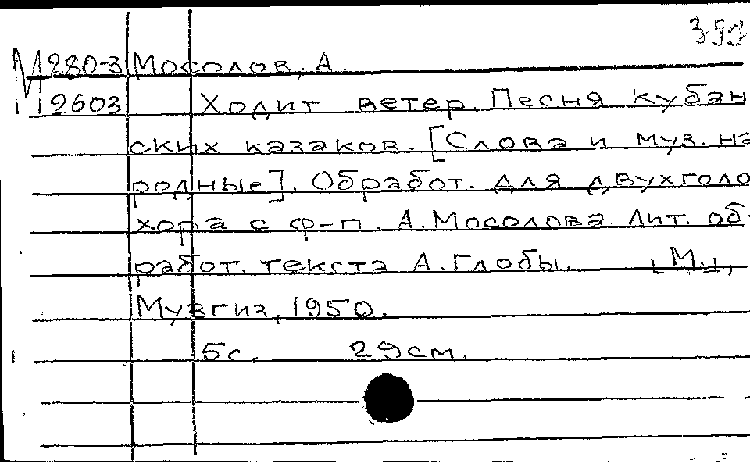 353
М 280-3 Мосолов, А.
19603 Ходит ветер. Песня кубан
ских казаков. [Слова и муз. на
родные]. Обработ. для двухголо
хора с ф-п. А. Мосолова. Лит. об-
работ. текста А. Глобы. [М.],
Музгиз, 1950.
5с. 29см.